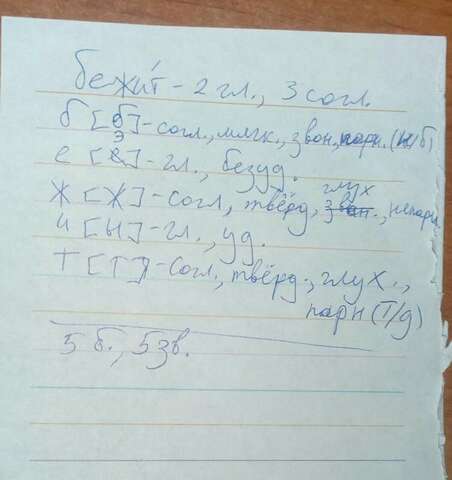 бежи́т - 2 гл., 3 согл.
б [б] - согл., мягк., звон., парн. (п/б)
е [э] - гл., безуд.
ж [ж] - согл, твёрд, глух., непарн
и [ы] - гл., уд.
т [т] - согл, твёрд., глух.,
парн (т/д)
5 б., 5 зв.